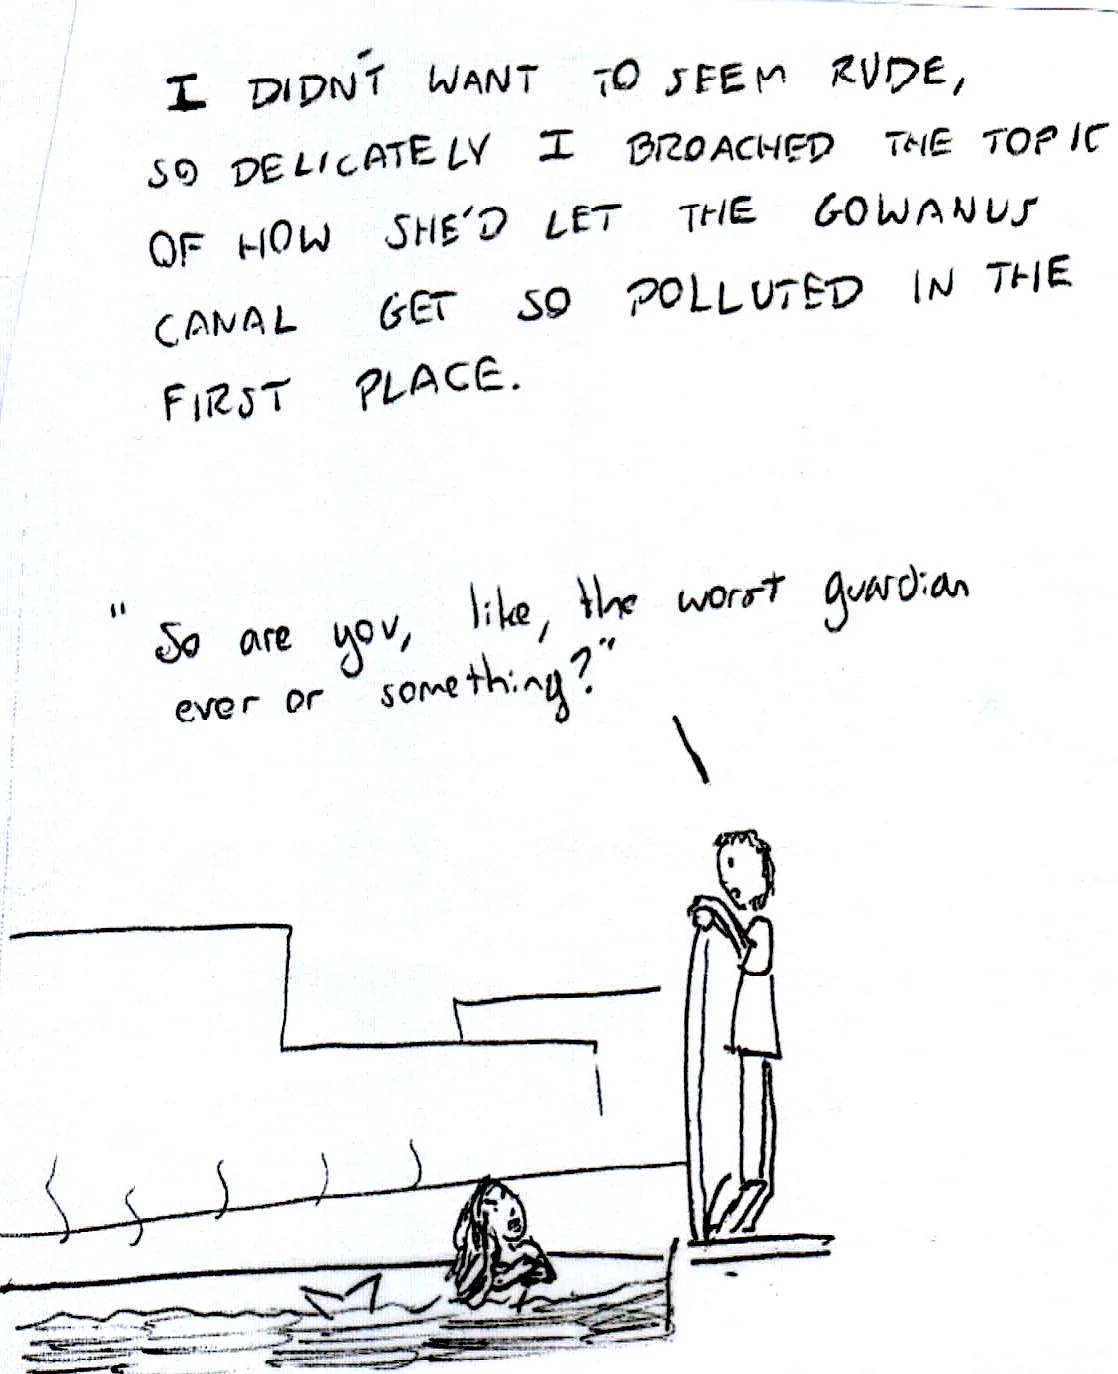 I DIDN'T WANT TO SEEM RUDE,
SO DELICATELY I BROACHED THE TOPIC
OF HOW SHE'D LET THE GOWANUS
CANAL GET SO POLLUTED IN THE
FIRST PLACE.
"So are you, like, the worst guardian
ever or something?"